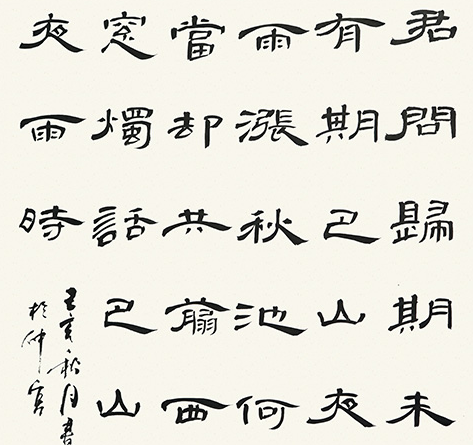 君問歸期未
有期巴山夜
雨漲秋池何
當却共翦西
窓燭話巴山
夜雨時
己亥秋月書
於仲宮